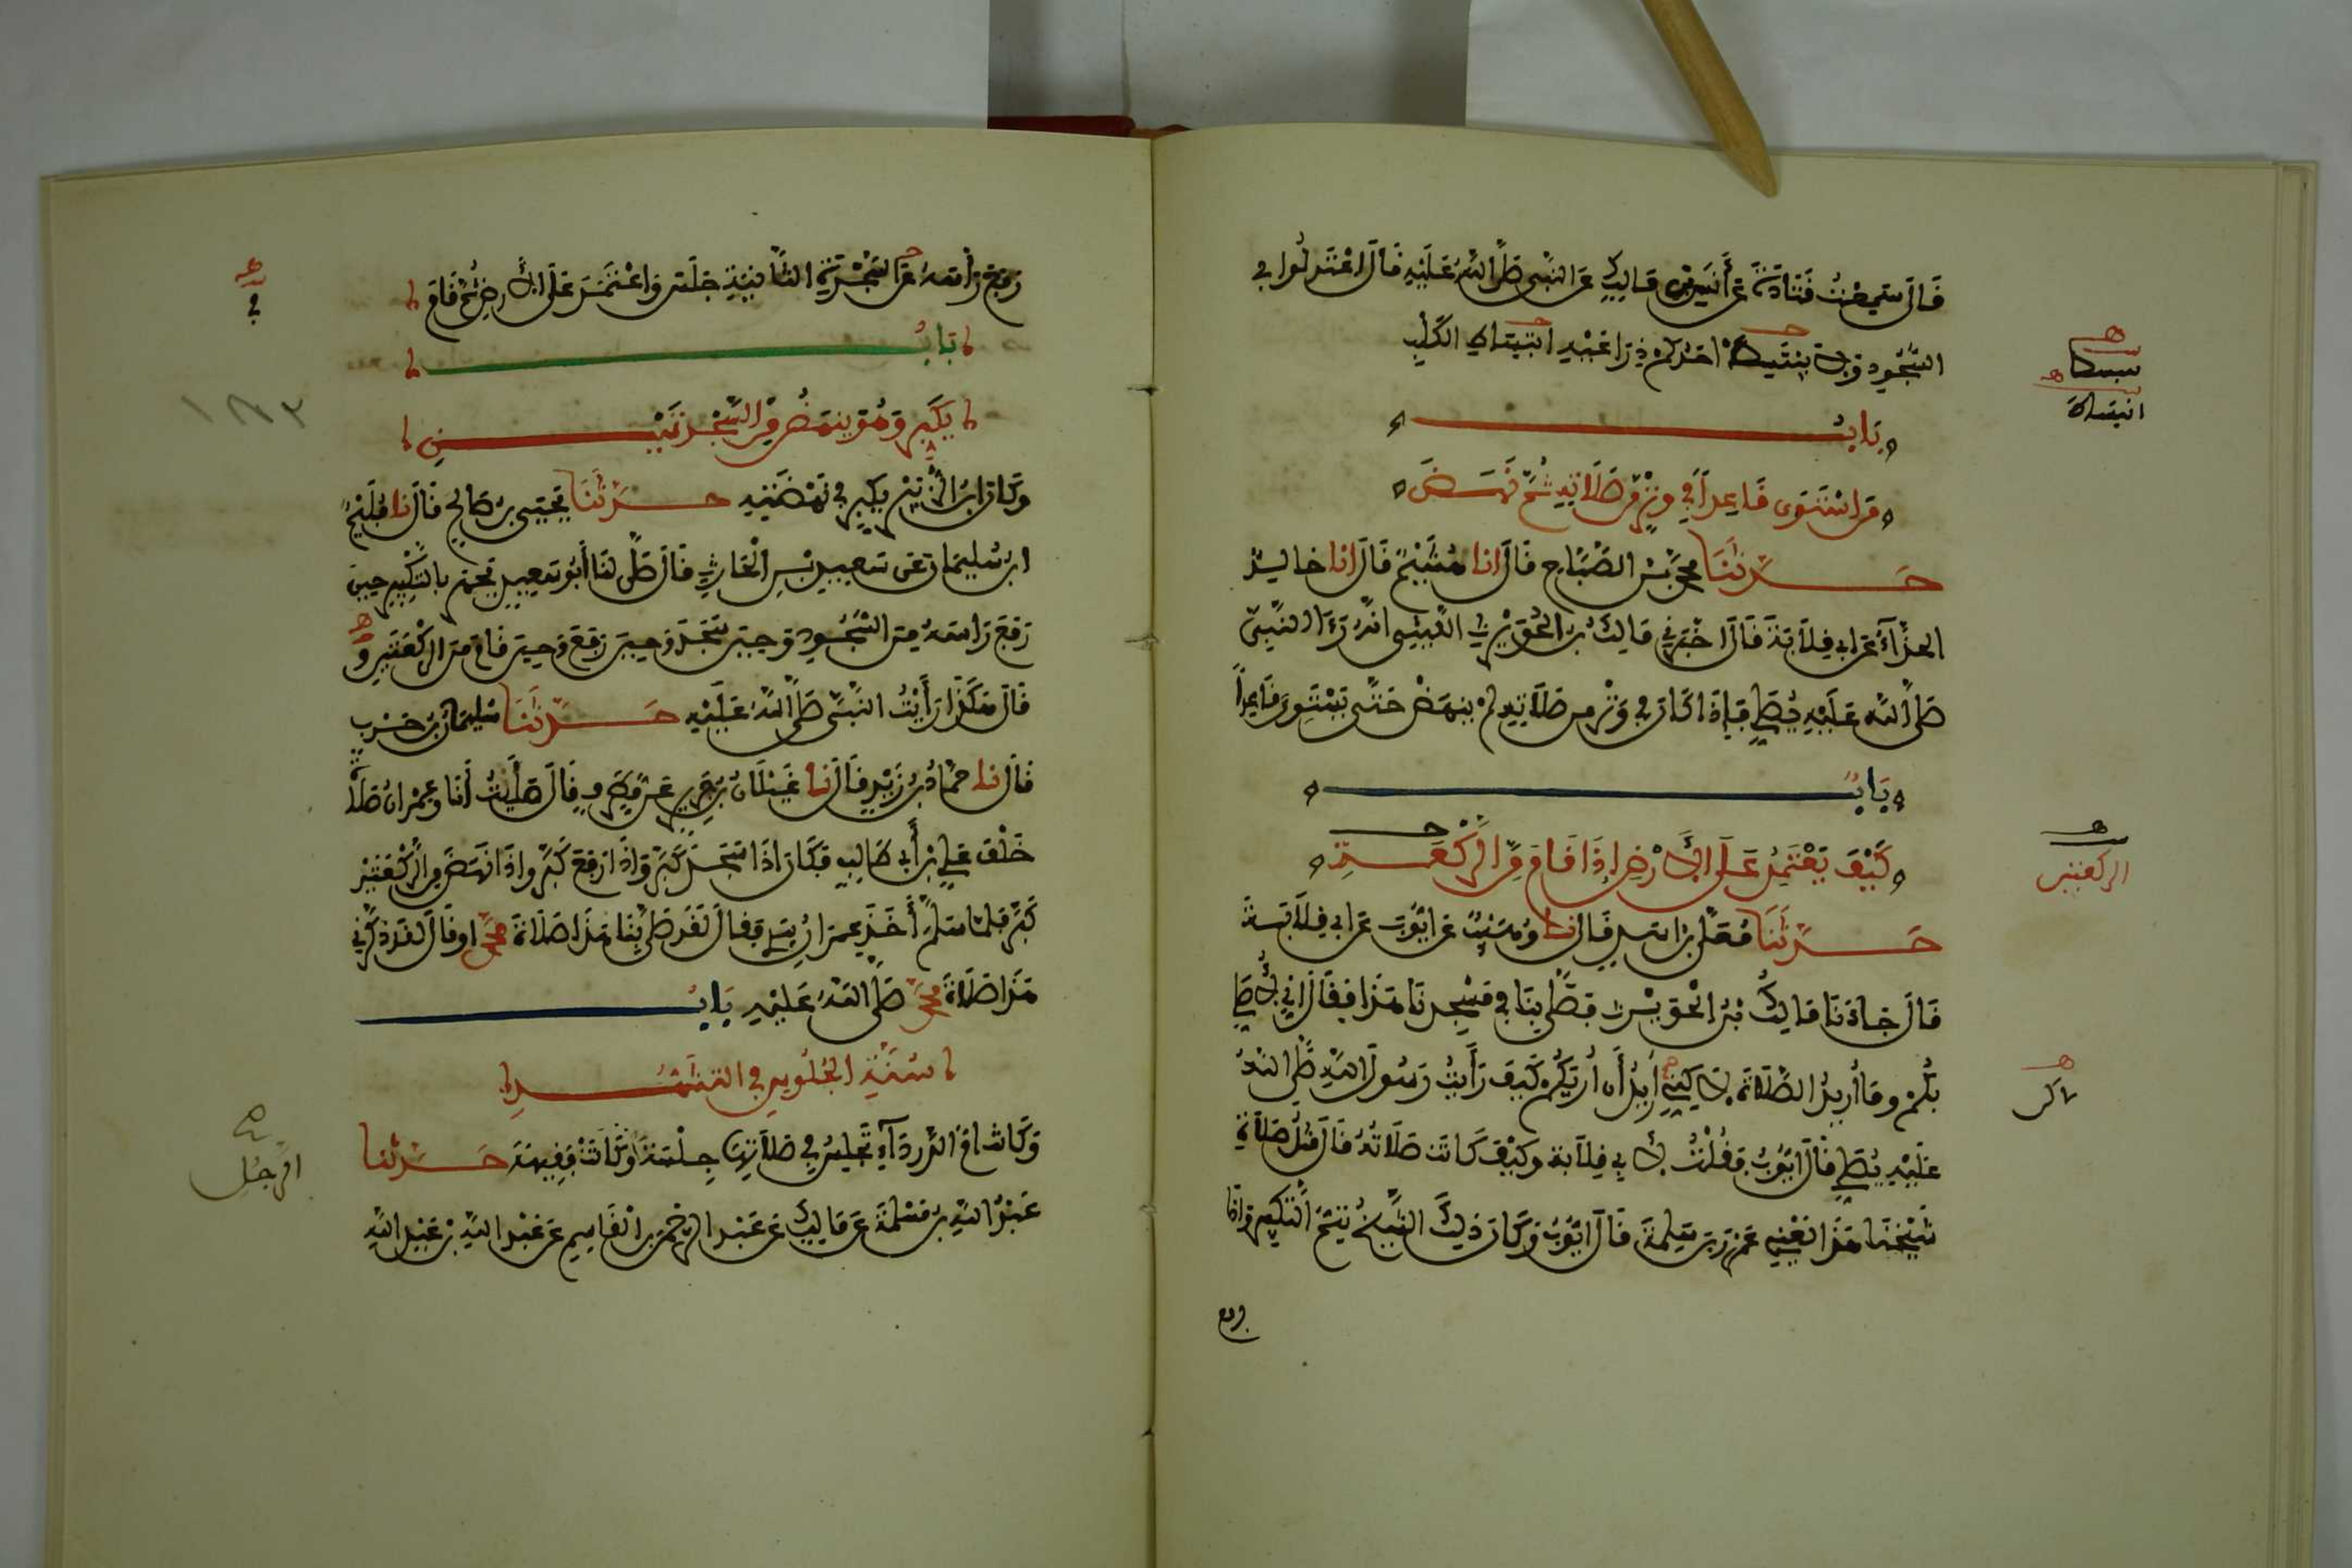 قَالَ سَمِعْتُ قَتَادَةَ عَنْ أَنَسِ بْنِ مَالِكٍ عَنِ النَّبِيِّ صَلَّى اللهُ عَلَيْهِ قَالَ اعْتَدِلُوا فِي
السُّجُودِ وَلَا يَنْبَسِطْ أَحَدُكُمْ ذِرَاعَيْهِ انْبِسَاطَ الْكَلْبِ
بَابُ
مَنِ اسْتَوَى قَاعِدًا فِي وِتْرٍ مِّنْ صَلَاتِهِ ثُمَّ نَهَضَ
حَدَّثَنَا مُحَمَّدُ بْنُ الصَّبَّاحِ قَالَ أنا هُشَيْمٌ قَالَ أنا خَالِدٌ
الْحَذَّاءُ عَنْ أَبِي قِلَابَةَ قَالَ أَخْبَرَنِي مَالِكُ بْنُ الْحُوَيْرِثِ اللَّيْثِيُّ أَنَّهُ رَأَى النَّبِيَّ
صَلَّى اللهُ عَلَيْهِ يُصَلِّي فَإِذَا كَانَ فِي وِتْرٍ مِنْ صَلَاتِهِ لَمْ يَنْهَضْ حَتَّى يَسْتَوِيَ قَاعِدًا
بَابُ
كَيْفَ يَعْتَمِدُ عَلَى الْأَرْضِ إِذَا قَامَ مِنَ الرَّكْعَةِ
حَدَّثَنَا مُعَلَّى بْنُ أَسَدٍ قَالَ نا وُهَيْبٌ عَنْ أَيُّوبَ عَنْ أَبِي قِلَابَةَ
قَالَ جَاءَنَا مَالِكُ بْنُ الْحُوَيْرِثِ فَصَلَّى بِنَا فِي مَسْجِدِنَا هَذَا فَقَالَ إِنِّي لَأُصَلِّي
بِكُمْ وَمَا أُرِيدُ الصَّلَاةَ لَكِنِّي أُرِيدُ أَنْ أُرِيَكُمْ كَيْفَ رَأَيْتُ رَسُولَ اللهِ صَلَّى اللهُ
عَلَيْهِ يُصَلِّي قَالَ أَيُّوبُ فَقُلْتُ لِأَبِي قِلَابَةَ وَكَيْفَ كَانَتْ صَلَاتُهُ قَالَ مِثْلَ صَلَاةِ
شَيْخِنَا هَذَا يَعْنِي عَمْرَو بْنَ سَلِمَةَ قَالَ أَيُّوبُ وَكَانَ ذَلِكَ الشَّيْخُ يُتِمُّ التَّكْبِيرَ وَإِذَا
رفع
يبسط
انبساط
الركعتين
لاكن
رَفَعَ رَأْسَهُ عَنِ السَّجْدَةِ الثَّانِيَةِ جَلَسَ وَاعْتَمَدَ عَلَى الْأَرْضِ ثُمَّ قَامَ
بَابُ
يُكَبِّرُ وَهُوَ يَنْهَضُ مِنَ السَّجْدَتَيْنِ
وَكَانَ ابْنُ الزُّبَيْرِ يُكَبِّرُ فِي نَهْضَتِهِ حَدَّثَنَا يَحْيَى بْنُ صَالِحٍ قَالَ نا فُلَيْحُ
ابْنُ سُلَيْمَانَ عَنْ سَعِيدِ بْنِ الْحَارِثِ قَالَ صَلَّى لَنَا أَبُو سَعِيدٍ فَجَهَرَ بِالتَّكْبِيرِ حِينَ
رَفَعَ رَأْسَهُ مِنَ السُّجُودِ وَحِينَ سَجَدَ وَحِينَ رَفَعَ وَحِينَ قَامَ مِنَ الرَّكْعَتَيْنِ وَ
قَالَ هَكَذَا رَأَيْتُ النَّبِيَّ صَلَّى اللهُ عَلَيْهِ حَدَّثَنَا سُلَيْمَانُ بْنُ حَرْبٍ
قَالَ نا حَمَّادُ بْنُ زَيْدٍ قَالَ نا غَيْلَانُ بْنُ جَرِيرٍ عَنْ مُطَرِّفٍ قَالَ صَلَّيْتُ أَنَا وَعِمْرَانُ صَلَاةً
خَلْفَ عَلِيِّ بْنِ أَبِي طَالِبٍ فَكَانَ إِذَا سَجَدَ كَبَّرَ وَإِذَا رَفَعَ كَبَّرَ وَإِذَا نَهَضَ مِنَ الرَّكْعَتَيْنِ
كَبَّرَ فَلَمَّا سَلَّمَ أَخَذَ عِمْرَانُ بِيَدِي فَقَالَ لَقَدْ صَلَّى بِنَا هَذَا صَلَاةَ مُحَمَّدٍ أَوْ قَالَ لَقَدْ ذَكَّرَنِي
هَذَا صَلَاةَ مُحَمَّدٍ صَلَّى اللهُ عَلَيْهِ بَابُ
سُنَّةِ الْجُلُوسِ فِي التَّشَهُّدِ
وَكَانَتْ أُمُّ الدَّرْدَاءِ تَجْلِسُ فِي صَلَاتِهَا جِلْسَةَ الرَّجُلِ وَكَانَتْ فَقِيهَةً حَدَّثَنَا
عَبْدُ اللهِ بْنُ مَسْلَمَةَ عَنْ مَالِكٍ عَنْ عَبْدِ الرَّحْمَنِ بْنِ الْقَاسِمِ عَنْ عَبْدِ اللهِ بْنِ عَبْدِ اللهِ
في
الرجل